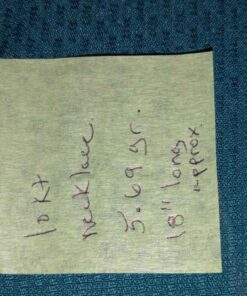 10Kt
necklace.
5.69 gr.
18" long
approx.